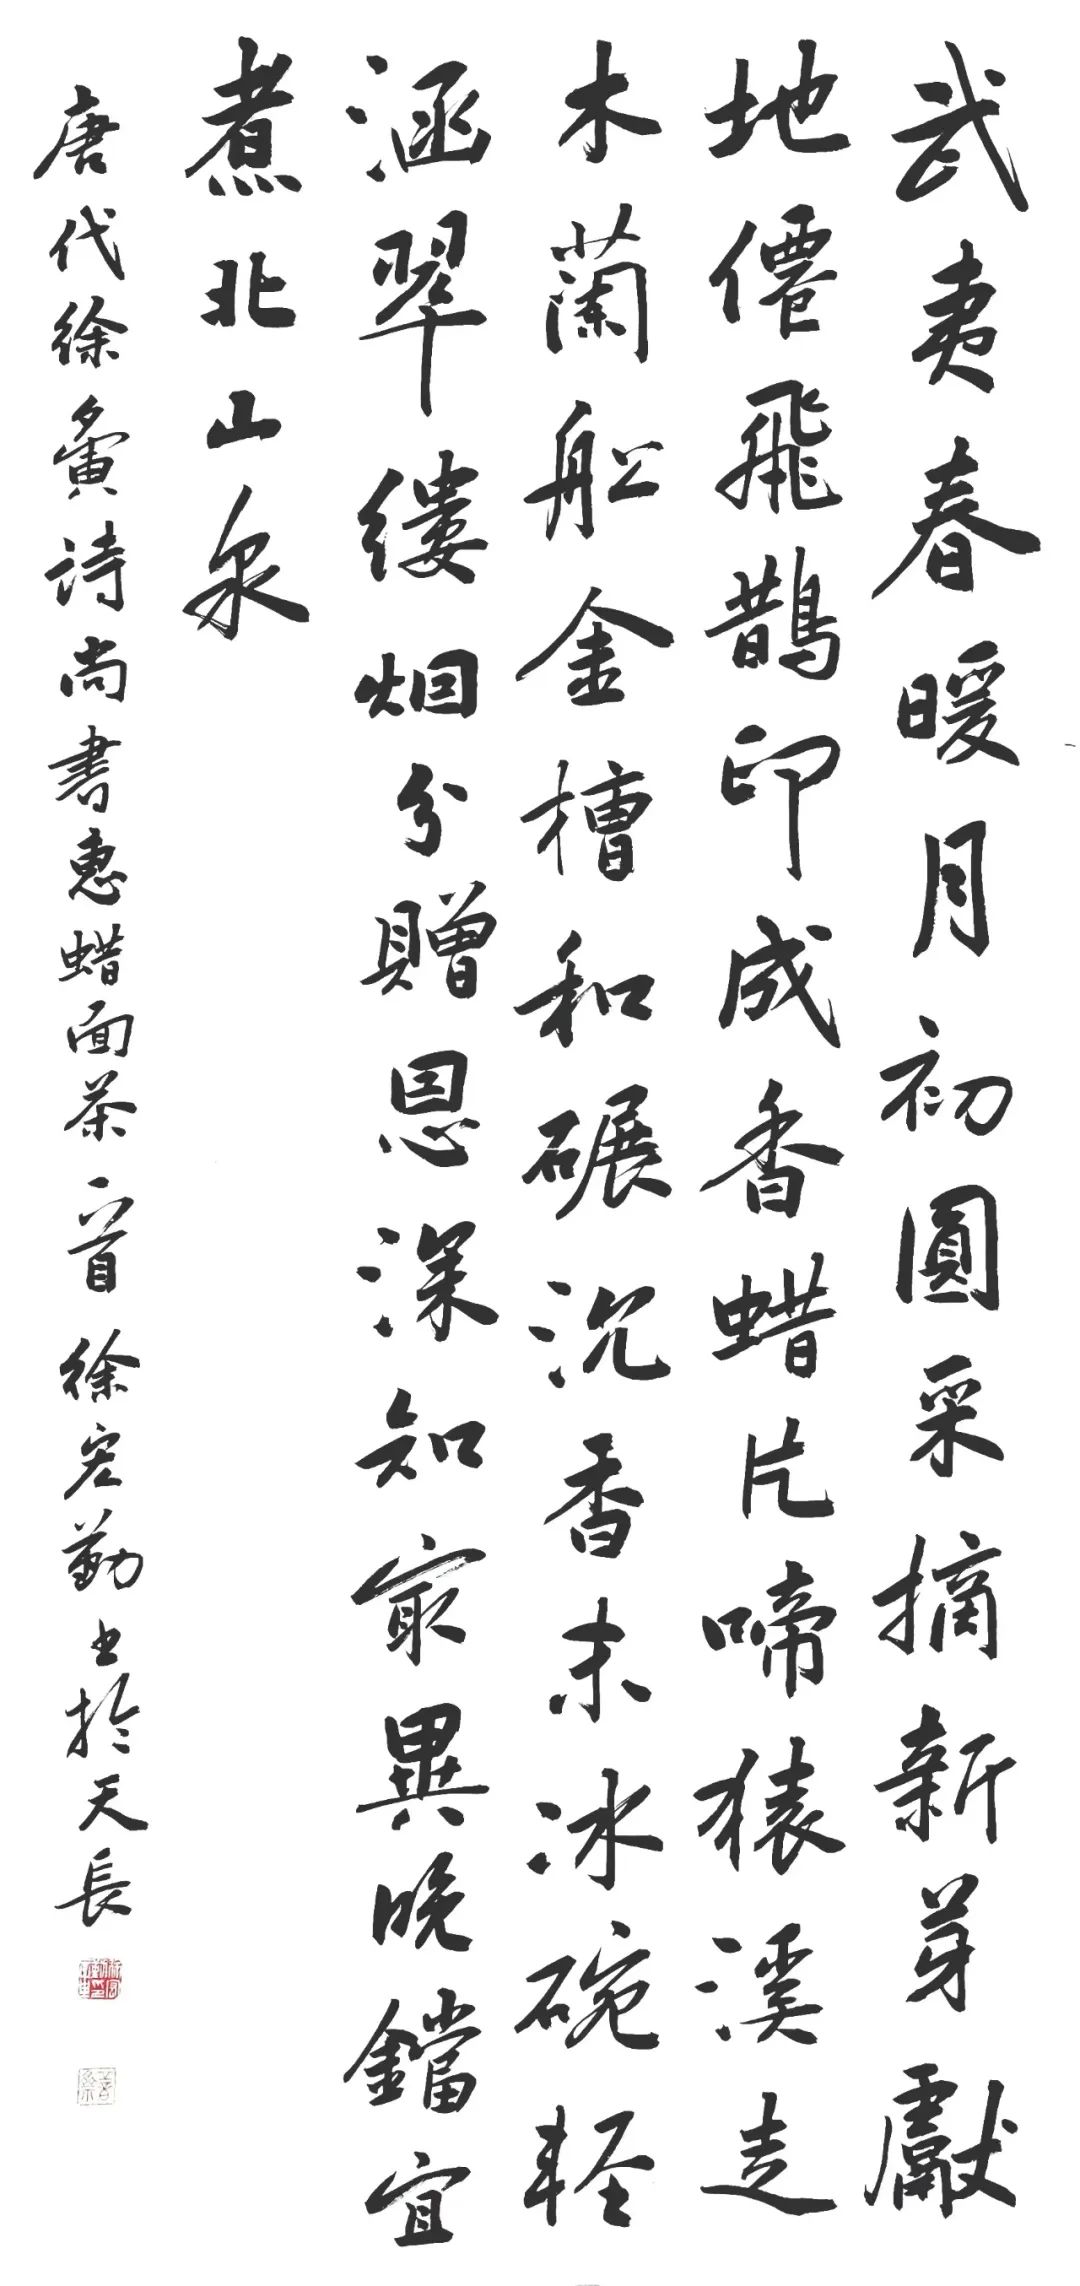 武夷春暖月初圓采摘新芽獻
地僊飛鵲印成香蜡片啼猿溪走
木蘭船金槽和碾沉香末冰碗輕
涵翠缕烟分贈恩深知最異晚鐺宜
煮北山泉
唐代徐夤诗尚書惠蜡面茶一首 徐宏勤书於天長